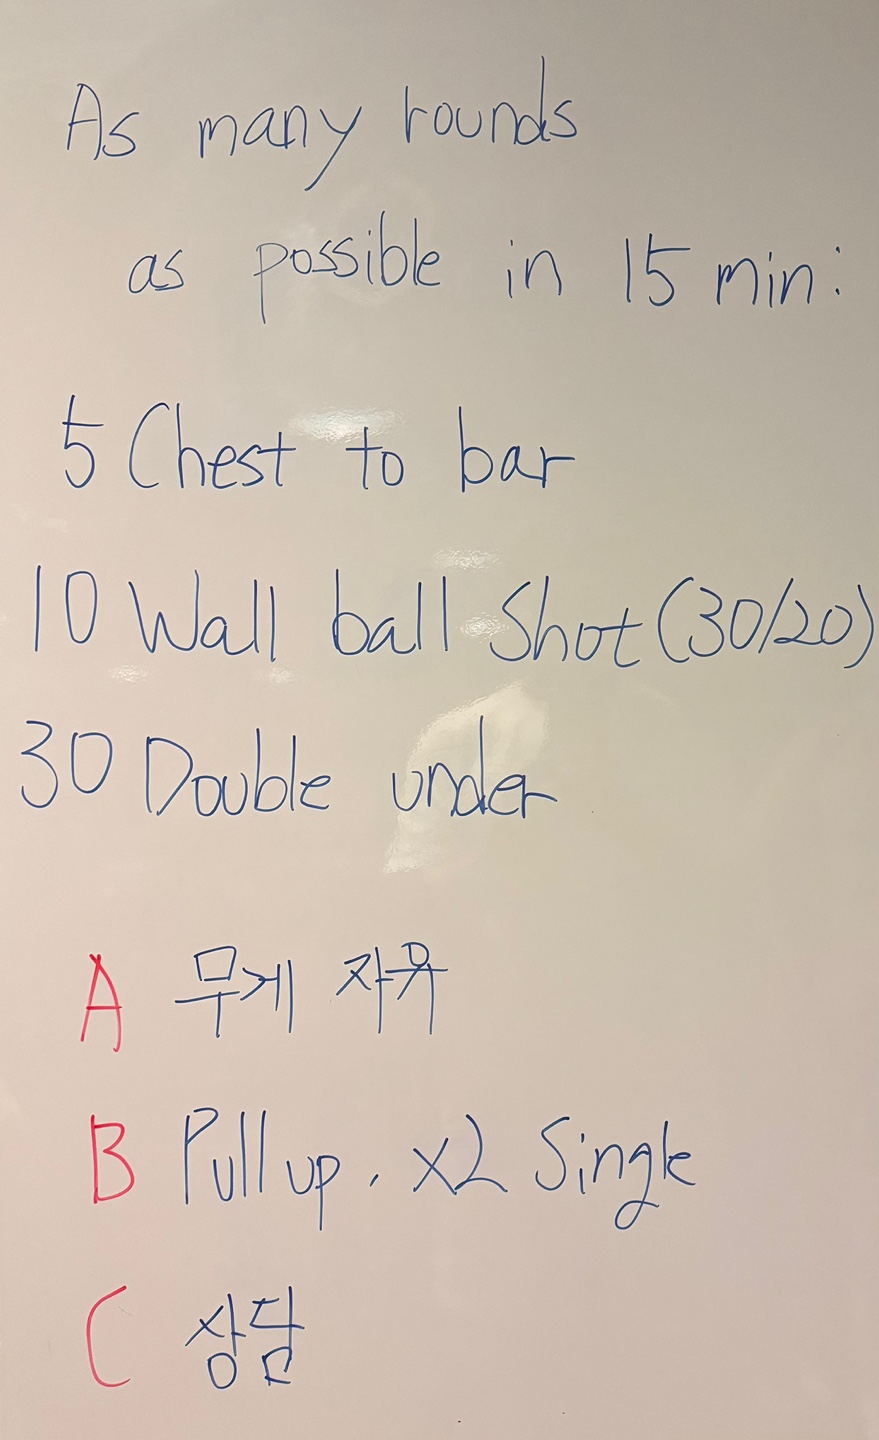 As many rounds
as possible in 15 min:
5 Chest to bar
10 Wall ball Shot (30/20)
30 Double under
A 무게 자유
B Pull up, x2 Single
C 상담